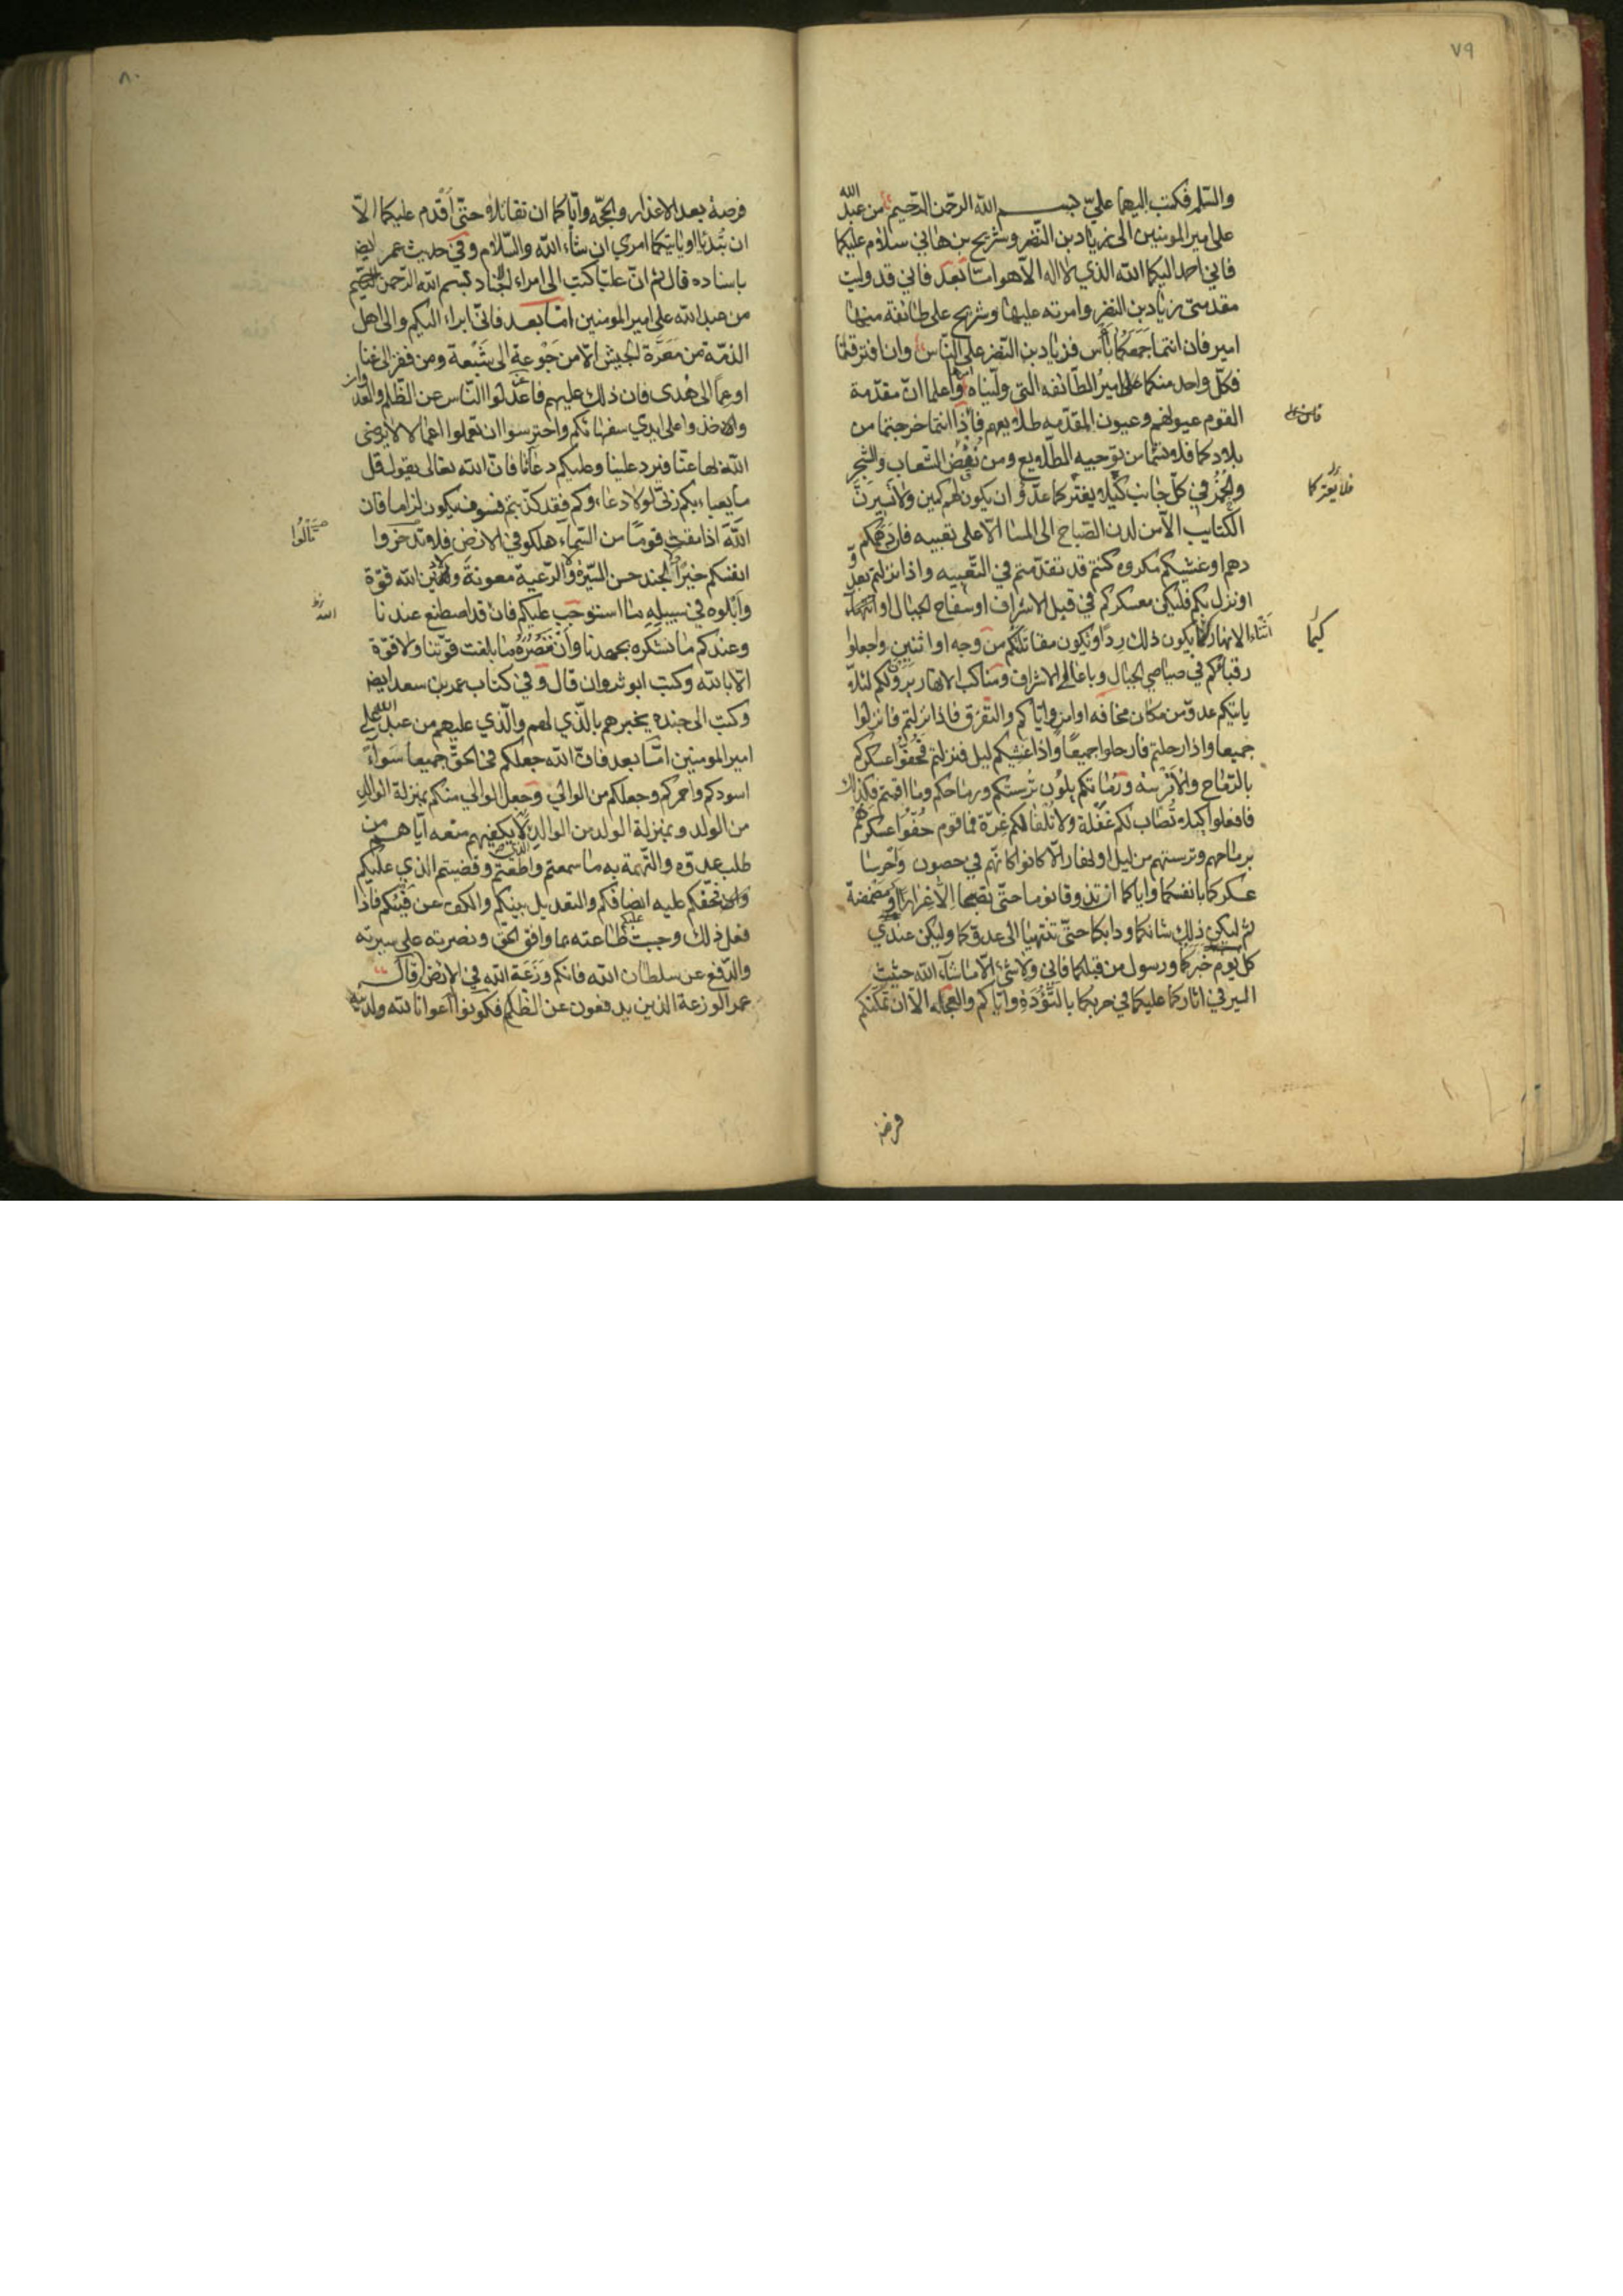 ٧٩
والسّلم فكتب اليهما عليّ بسم الله الرحمن الرّحيم من عبد الله
علي امير المومنين الى زياد بن النضر وشريح بن هاني سلام عليكما
فاني احمد اليكما الله الذي لا اله الا هو امّا بعد فاني قد وليت
مقدمتى زياد بن النضر وامرته عليها وشريح على طائفة منها
امير فان انتما جمعكما باس فزياد بن النضر على الناس وان افترقتما
فكلّ واحد منكما على امير الطّائفه التي ولّيناه واعلما انّ مقدّمة
القوم عيونهم وعيون المقدّمه طلايعهم فاذا انتما خرجتما من
بلادكما فلا تسئما من توجيه الطّلايع ومن نفض الشّعاب والشجر
والخمر في كلّ جانب كيلا يغترّكما عدّو او ان يكون لهم كمين ولا تسيرنّ
الكتايب الا من لدن الصّباح الى المسا الا على تعبيه فان دهمكم
دهم او غشيكم مكروه كنتم قد تقدّمتم في التّعبيه واذا نزلتم بعدوّ
او نزل بكم فليكن معسكركم في قبل الاشراف او سفاح الجبال او
اثناء الانهار كيما يكون ذلك ردءا وتكون مقاتلتكم من وجه او اثنين واجعلوا
رقباءكم في صياصي الجبال وباعالي الاشراف ومناكب الانهار يرون لكم لئلا
ياتيكم عدوّ من مكان مخافه او امن واياكم والتفرّق فاذا نزلتم فانزلوا
جميعا واذا رحلتم فارحلوا جميعًا واذا غشيكم ليل فنزلتم فحُفّوا عسكركم
بالرّماح والاترسه ورماتكم يلون ترستكم ورماحكم وما اقمتم فكذلك
فافعلوا كيلا تُصاب لكم غفلة ولا تلفا لكم غرّة فما قوم حُفّوا عسكرهم
برماحهم وترستهم من ليل او نهار الا كانوا كانّهم في حصون واحرسا
عسكركما بانفسكما واياكما ان تذوقا نوما حتّى تصبحا الا غرارًا او مضمضة
ثم ليكن ذلك شانكما ودابكما حتّى تنتهيا الى عدوّكما وليكن عندي
كل يوم خبركما ورسول من قبلكما فاني ولا شئ الا ما شاء الله حثيث
السير في اثاركما عليكما في حربكما بالتّؤدة واياكم والعجله الا ان تمكنكم
فلا يغترّكما
كيما
فرصة
٨٠
فرصة بعد الاعذار والحجّه وايّاكما ان تقاتلا حتّى اقدم عليكما الا
ان تُبدئا او ياتيكما امري ان شاء الله والسّلام وفي حديث عمر ايضا
باسناده قال ثم انّ عليّا كتب الى امراء الجناد بسم الله الرّحمن الرّحيم
من عبد الله علي امير المومنين امّا بعد فانّي ابراء اليكم والى اهل
الذمّة من معرّة الجيش الا من جوعة الى شبعة ومن فقر الى غنا
او عمًا الى هُدى فان ذلك عليهم فاعدلوا النّاس عن الظّلم والعدوان
وخذوا على ايدي سفهائكم واحترسوا ان تعملوا اعمالا لا يرضى
الله بها عنّا فيرد علينا وعليكم دعانا فانّ الله تعالى يقول قل
ما يعباء بكم ربّي لولا دعاءوكم فقد كذّبتم فسوف يكون لزاما فان
الله اذا مقت قومًا من السّماء هلكو في الارض فلا تدّخروا
انفسكم خيرا ولا الجند حسن السّيرة ولا الرّعية معونة ولا دين الله قوّة
وابلوه في سبيله ما استوجب عليكم فان قد اصطنع عندنا
وعندكم ما نشكره بجهدنا وان ننصره ما بلغت قوّتنا ولا قوّة
الا بالله وكتب ابو ثروان قال وفي كتاب عمر بن سعد ايضا
وكتب الى جنده يخبرهم بالّذي لهم والّذي عليهم من عبد الله علي
امير المومنين امّا بعد فانّ الله جعلكم في الحقّ جميعا سواء
اسودكم واحمركم وجعلكم من الوالي وجعل الوالي منكم بمنزلة الوالد
من الولد وبمنزلة الولد من الوالد لا يكفيهم منعه اياهم من
طلب عدوّه والتّهمة به ما سمعتم واطعتم وقضيتم الذي عليكم
وان حقّكم عليه انصافكم والتعديل بينكم والكف عن فيئكم فاذا
فعل ذلك وجبت عليكم طاعته بما وافق الحقّ ونصرته على سيرته
والدّفع عن سلطان الله فانكم وزعة الله في الارض قال
عمر الوزعة الذين يدفعون عن الظلم فكونوا اعوانا لله ولدينه
الله